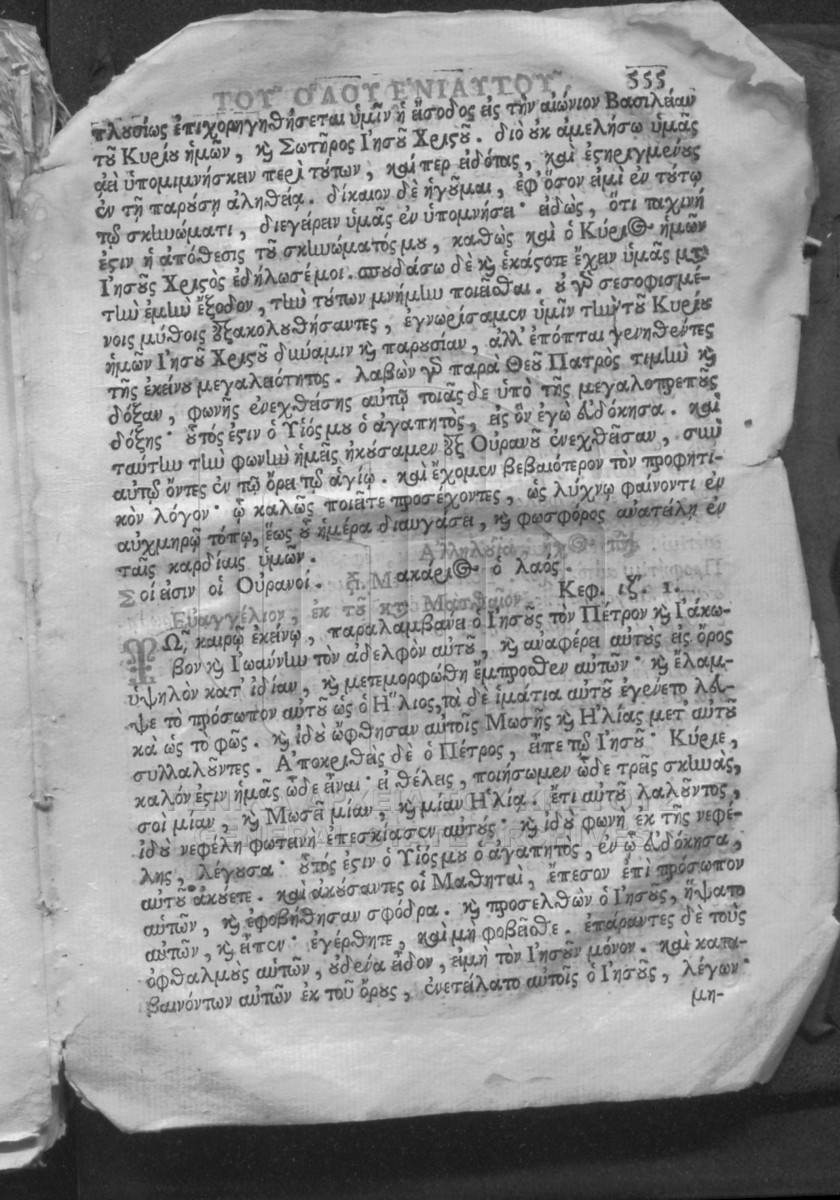 ΤΟΥ ὍΛΟΥ ἘΝΙΑΥΤΟΥ 555
πλουσίως ἐπιχορηγηθήσεται ὑμῖν ἡ εἴσοδος εἰς τὴν αἰώνιον Βασιλείαν
τοῦ Κυρίου ἡμῶν, καὶ Σωτῆρος Ἰησοῦ Χριστοῦ. διὸ οὐκ ἀμελήσω ὑμᾶς
ἀεὶ ὑπομιμνήσκειν περὶ τούτων, καίπερ εἰδότας, καὶ ἐστηριγμένους
ἐν τῇ παρούσῃ ἀληθείᾳ. δίκαιον δὲ ἡγοῦμαι, ἐφ' ὅσον εἰμὶ ἐν τούτῳ
τῷ σκηνώματι, διεγείρειν ὑμᾶς ἐν ὑπομνήσει· εἰδὼς, ὅτι ταχινή
ἐστιν ἡ ἀπόθεσις τοῦ σκηνώματός μου, καθὼς καὶ ὁ Κύριος ἡμῶν
Ἰησοῦς Χριστὸς ἐδήλωσέ μοι. σπουδάσω δὲ καὶ ἑκάστοτε ἔχειν ὑμᾶς μετὰ
τὴν ἐμὴν ἔξοδον, τὴν τούτων μνήμην ποιεῖσθαι. οὐ γὰρ σεσοφισμέ-
νοις μύθοις ἐξακολουθήσαντες, ἐγνωρίσαμεν ὑμῖν τὴν τοῦ Κυρίου
ἡμῶν Ἰησοῦ Χριστοῦ δύναμιν καὶ παρουσίαν, ἀλλ' ἐπόπται γενηθέντες
τῆς ἐκείνου μεγαλειότητος. λαβὼν γὰρ παρὰ Θεοῦ Πατρὸς τιμὴν καὶ
δόξαν, φωνῆς ἐνεχθείσης αὐτῷ τοιᾶς δε ὑπὸ τῆς μεγαλοπρεποῦς
δόξης· οὗτός ἐστιν ὁ Υἱός μου ὁ ἀγαπητὸς, εἰς ὃν ἐγὼ εὐδόκησα. καὶ
ταύτην τὴν φωνὴν ἡμεῖς ἠκούσαμεν ἐξ Οὐρανοῦ ἐνεχθεῖσαν, σὺν
αὐτῷ ὄντες ἐν τῷ ὄρει τῷ ἁγίῳ. καὶ ἔχομεν βεβαιότερον τὸν προφητι-
κὸν λόγον· ᾧ καλῶς ποιεῖτε προσέχοντες, ὡς λύχνῳ φαίνοντι ἐν
αὐχμηρῷ τόπῳ, ἕως οὗ ἡμέρα διαυγάσει, καὶ φωσφόρος ἀνατείλῃ ἐν
ταῖς καρδίαις ὑμῶν. Ἀλληλούϊα, ἦχος
Σοί εἰσιν οἱ Οὐρανοί. Μακάριος ὁ λαός.
Εὐαγγέλιον, ἐκ τοῦ κατὰ Ματθαῖον. Κεφ. ιζ. 1.
Τῷ καιρῷ ἐκείνῳ, παραλαμβάνει ὁ Ἰησοῦς τὸν Πέτρον καὶ Ἰάκω-
βον καὶ Ἰωάννην τὸν ἀδελφὸν αὐτοῦ, καὶ ἀναφέρει αὐτοὺς εἰς ὄρος
ὑψηλὸν κατ' ἰδίαν, καὶ μετεμορφώθη ἔμπροσθεν αὐτῶν· καὶ ἔλαμ-
ψε τὸ πρόσωπον αὐτοῦ ὡς ὁ Ἥλιος, τὰ δὲ ἱμάτια αὐτοῦ ἐγένετο λευ-
κὰ ὡς τὸ φῶς. καὶ ἰδοὺ ὤφθησαν αὐτοῖς Μωσῆς καὶ Ἠλίας μετ' αὐτοῦ
συλλαλοῦντες. Ἀποκριθεὶς δὲ ὁ Πέτρος, εἶπε τῷ Ἰησοῦ· Κύριε,
καλόν ἐστιν ἡμᾶς ὧδε εἶναι· εἰ θέλεις, ποιήσωμεν ὧδε τρεῖς σκηνὰς,
σοὶ μίαν, καὶ Μωσεῖ μίαν, καὶ μίαν Ἠλίᾳ. ἔτι αὐτοῦ λαλοῦντος,
ἰδοὺ νεφέλη φωτεινὴ ἐπεσκίασεν αὐτούς· καὶ ἰδοὺ φωνὴ ἐκ τῆς νεφέ-
λης, λέγουσα· οὗτός ἐστιν ὁ Υἱός μου ὁ ἀγαπητὸς, ἐν ᾧ εὐδόκησα,
αὐτοῦ ἀκούετε. καὶ ἀκούσαντες οἱ Μαθηταὶ, ἔπεσον ἐπὶ πρόσωπον
αὐτῶν, καὶ ἐφοβήθησαν σφόδρα. καὶ προσελθὼν ὁ Ἰησοῦς, ἥψατο
αὐτῶν, καὶ εἶπεν· ἐγέρθητε, καὶ μὴ φοβεῖσθε. ἐπάραντες δὲ τοὺς
ὀφθαλμοὺς αὑτῶν, οὐδένα εἶδον, εἰμὴ τὸν Ἰησοῦν μόνον. καὶ κατα-
βαινόντων αὐτῶν ἐκ τοῦ ὄρους, ἐνετείλατο αὐτοῖς ὁ Ἰησοῦς, λέγων·
μη-